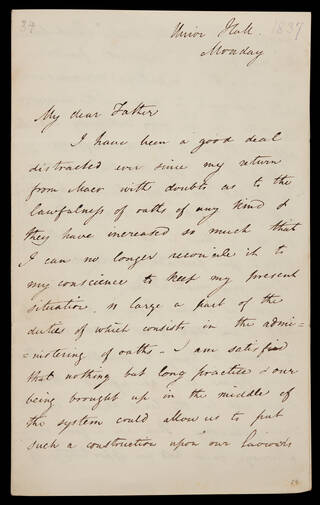 34
Union Hall. 1837
Monday
My dear Father
I have been a good deal
distracted ever since my return
from Maer with doubts as to the
lawfulness of oaths of any kind &
they have increased so much that
I can no longer reconcile it to
my conscience to keep my present
situation, so large a part of the
duties of which consists in the admi=
=nistering of oaths – I am satisfied
that nothing but long practice & our
being brought up in the middle of
the system could allow us to put
such a construction upon our Saviour's